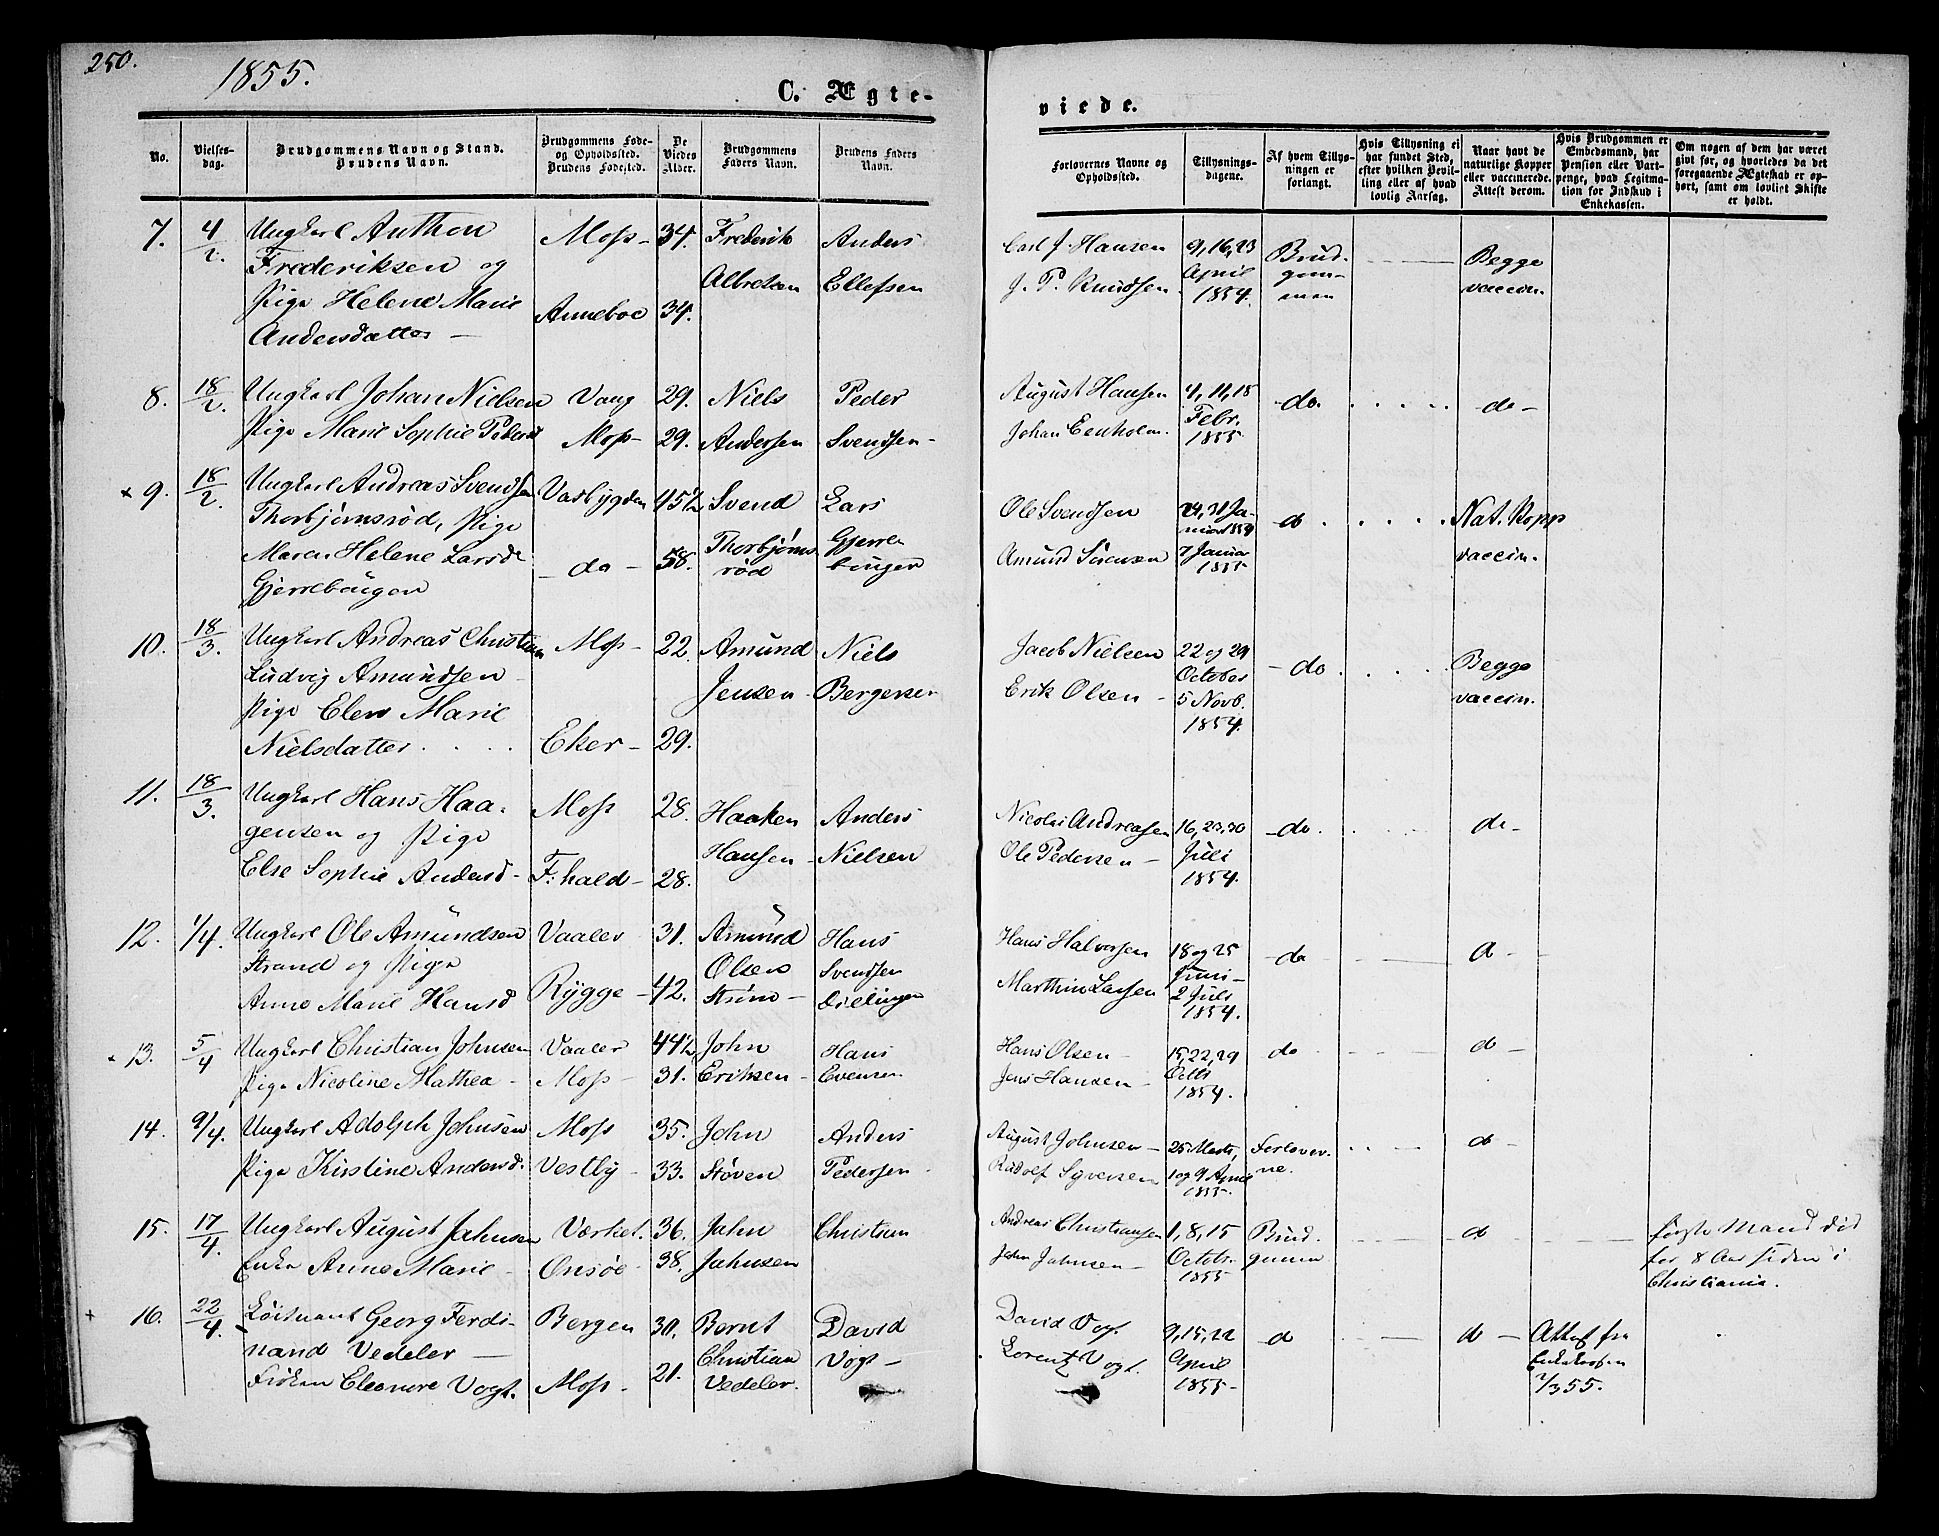 250.
1855.
C. Ægte-
viede.
No.
Vielses-
dag.
Brudgommens Navn og Stand.
Brudens Navn.
Brudgommens Føde-
og Opholdssted.
Brudens Fødested.
De
Viedes
Alder.
Brudgommens
Faders Navn.
Brudens Faders
Navn.
Forlovernes Navne og
Opholdssted.
Tillysnings-
dagene.
Af hvem Tillys-
ningen er
forlangt.
Hvis Tillysning ei
har fundet Sted,
efter hvilken Bevil-
ling eller af hvad
lovlig Aarsag.
Naar havt de
naturlige Kopper
eller vaccinerede.
Attest derom.
Hvis Brudgommen er
Embedsmand, har
Pension eller Vart-
penge, hvad Legitima-
tion for Indskud i
Enkekassen.
Om nogen af dem har været
gift før, og hvorledes da det
foregaaende Ægteskab er op-
hørt, samt om lovligt Skifte
er holdt.
7. 4/2. Ungkarl Anthon Moss- 34. Frederik Anders Carl J. Hansen 9, 16, 23 Brud- Begge
Frederiksen og Albretsen Ellefsen J. P. Knudsen April gom- vaccin.
Pige Helene Marie Anneboe 34. 1854. men
Andersdatter
8. 18/2. Ungkarl Johan Nielsen Vang 29. Niels Peder August Hansen 4, 11, 18 do. do
Pige Marie Sophie Pedersd Moss- 29. Andersen Svendsen Johan Eenholm. Febr. 1855
× 9. 18/2. Ungkarl Andreas Svendsen Vasbygden 45½ Svend Lars Ole Svendsen 24, 31 Ja- do Nat. Kopp
Thorbjørnsrød, Pige nuar 1854
Maren Helene Larsd do 58. Thorbjørns Gjerre Amund Sørensen 7 Januar vaccin.
Gjerrebøugen rød bøugen 1855
10. 18/3. Ungkarl Andreas Christian Moss 22. Amund Niels Jacob Nielsen 22 og 29 do Begge
Ludvig Amundsen Jensen Bergersen Erik Olsen October vaccin.
Pige Elen Marie 5 Novb.
Nielsdatter Eker 29. 1854.
11. 18/3. Ungkarl Hans Haa- Moss 28. Haaken Anders Nicolai Andreasen 16, 23, 30 do. do
gensen og Pige Hansen Nielsen Ole Pedersen Juli
Else Sophie Andersd F:hald 28. 1854.
12. 1/4. Ungkarl Ole Amundsen Vaaler 31. Amund Hans Hans Halvorsen 18 og 25 do d
Strand og Pige Olsen Svendsen Juni
Anne Marie Hansd Rygge 42. Strøm Dillingen Marthin Larsen 2 Juli
1854.
13. 5/4 Ungkarl Christian Johnsen Vaaler 44½ John Hans Hans Olsen 15, 22, 29 do do
Pige Nicoline Mathea Moss 31. Eriksen Evensen Jens Hansen Octb 1854.
14. 9/4. Ungkarl Adolph Johnsen Moss 35. John Anders August Johnsen 25 Marts, Forlover- do
Pige Kirstine Andersd. Vestby 33. Støven Pedersen Rudolf Syversen 1 og 9 April ne.
1855.
15. 17/4. Ungkarl August Jahnsen Værket. 36. Jahn Christian Andreas Christiansen 1, 8, 15 Brud- do første Mand død
Enke Anne Marie Onsøe 38. Jahnsen John Jahnsen Octobr. gommen for 8 Aar siden i
1855 Christiania.
+ 16. 22/4. Løitnant Georg Ferdi- Bergen 30. Bernt David David Vogt 9, 15, 22 do do Attest fra
nand Vedeler Christian Vogt Lorentz Vogt. April Enkekassen
Frøken Eleonore Vogt. Moss. 21. Vedeler. 1855 2/3 55.